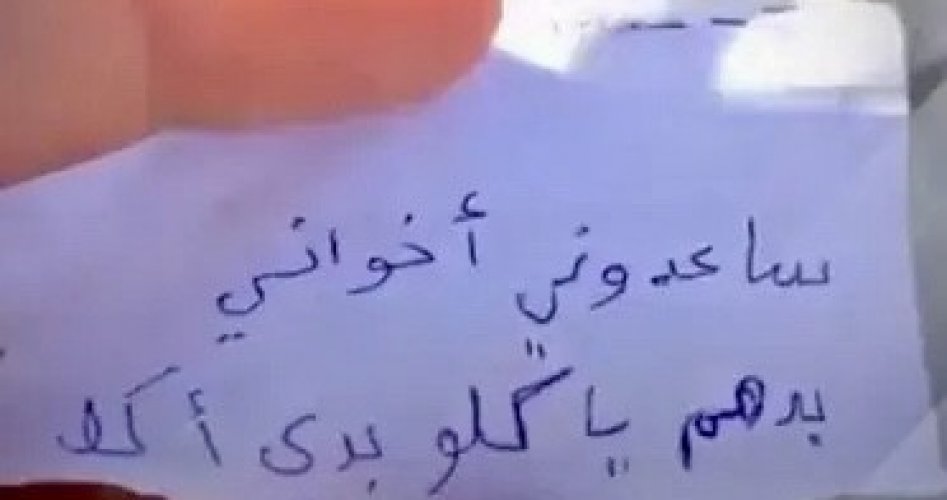 ساعدوني أخواني
بدهم ياكلو بدى أكلا